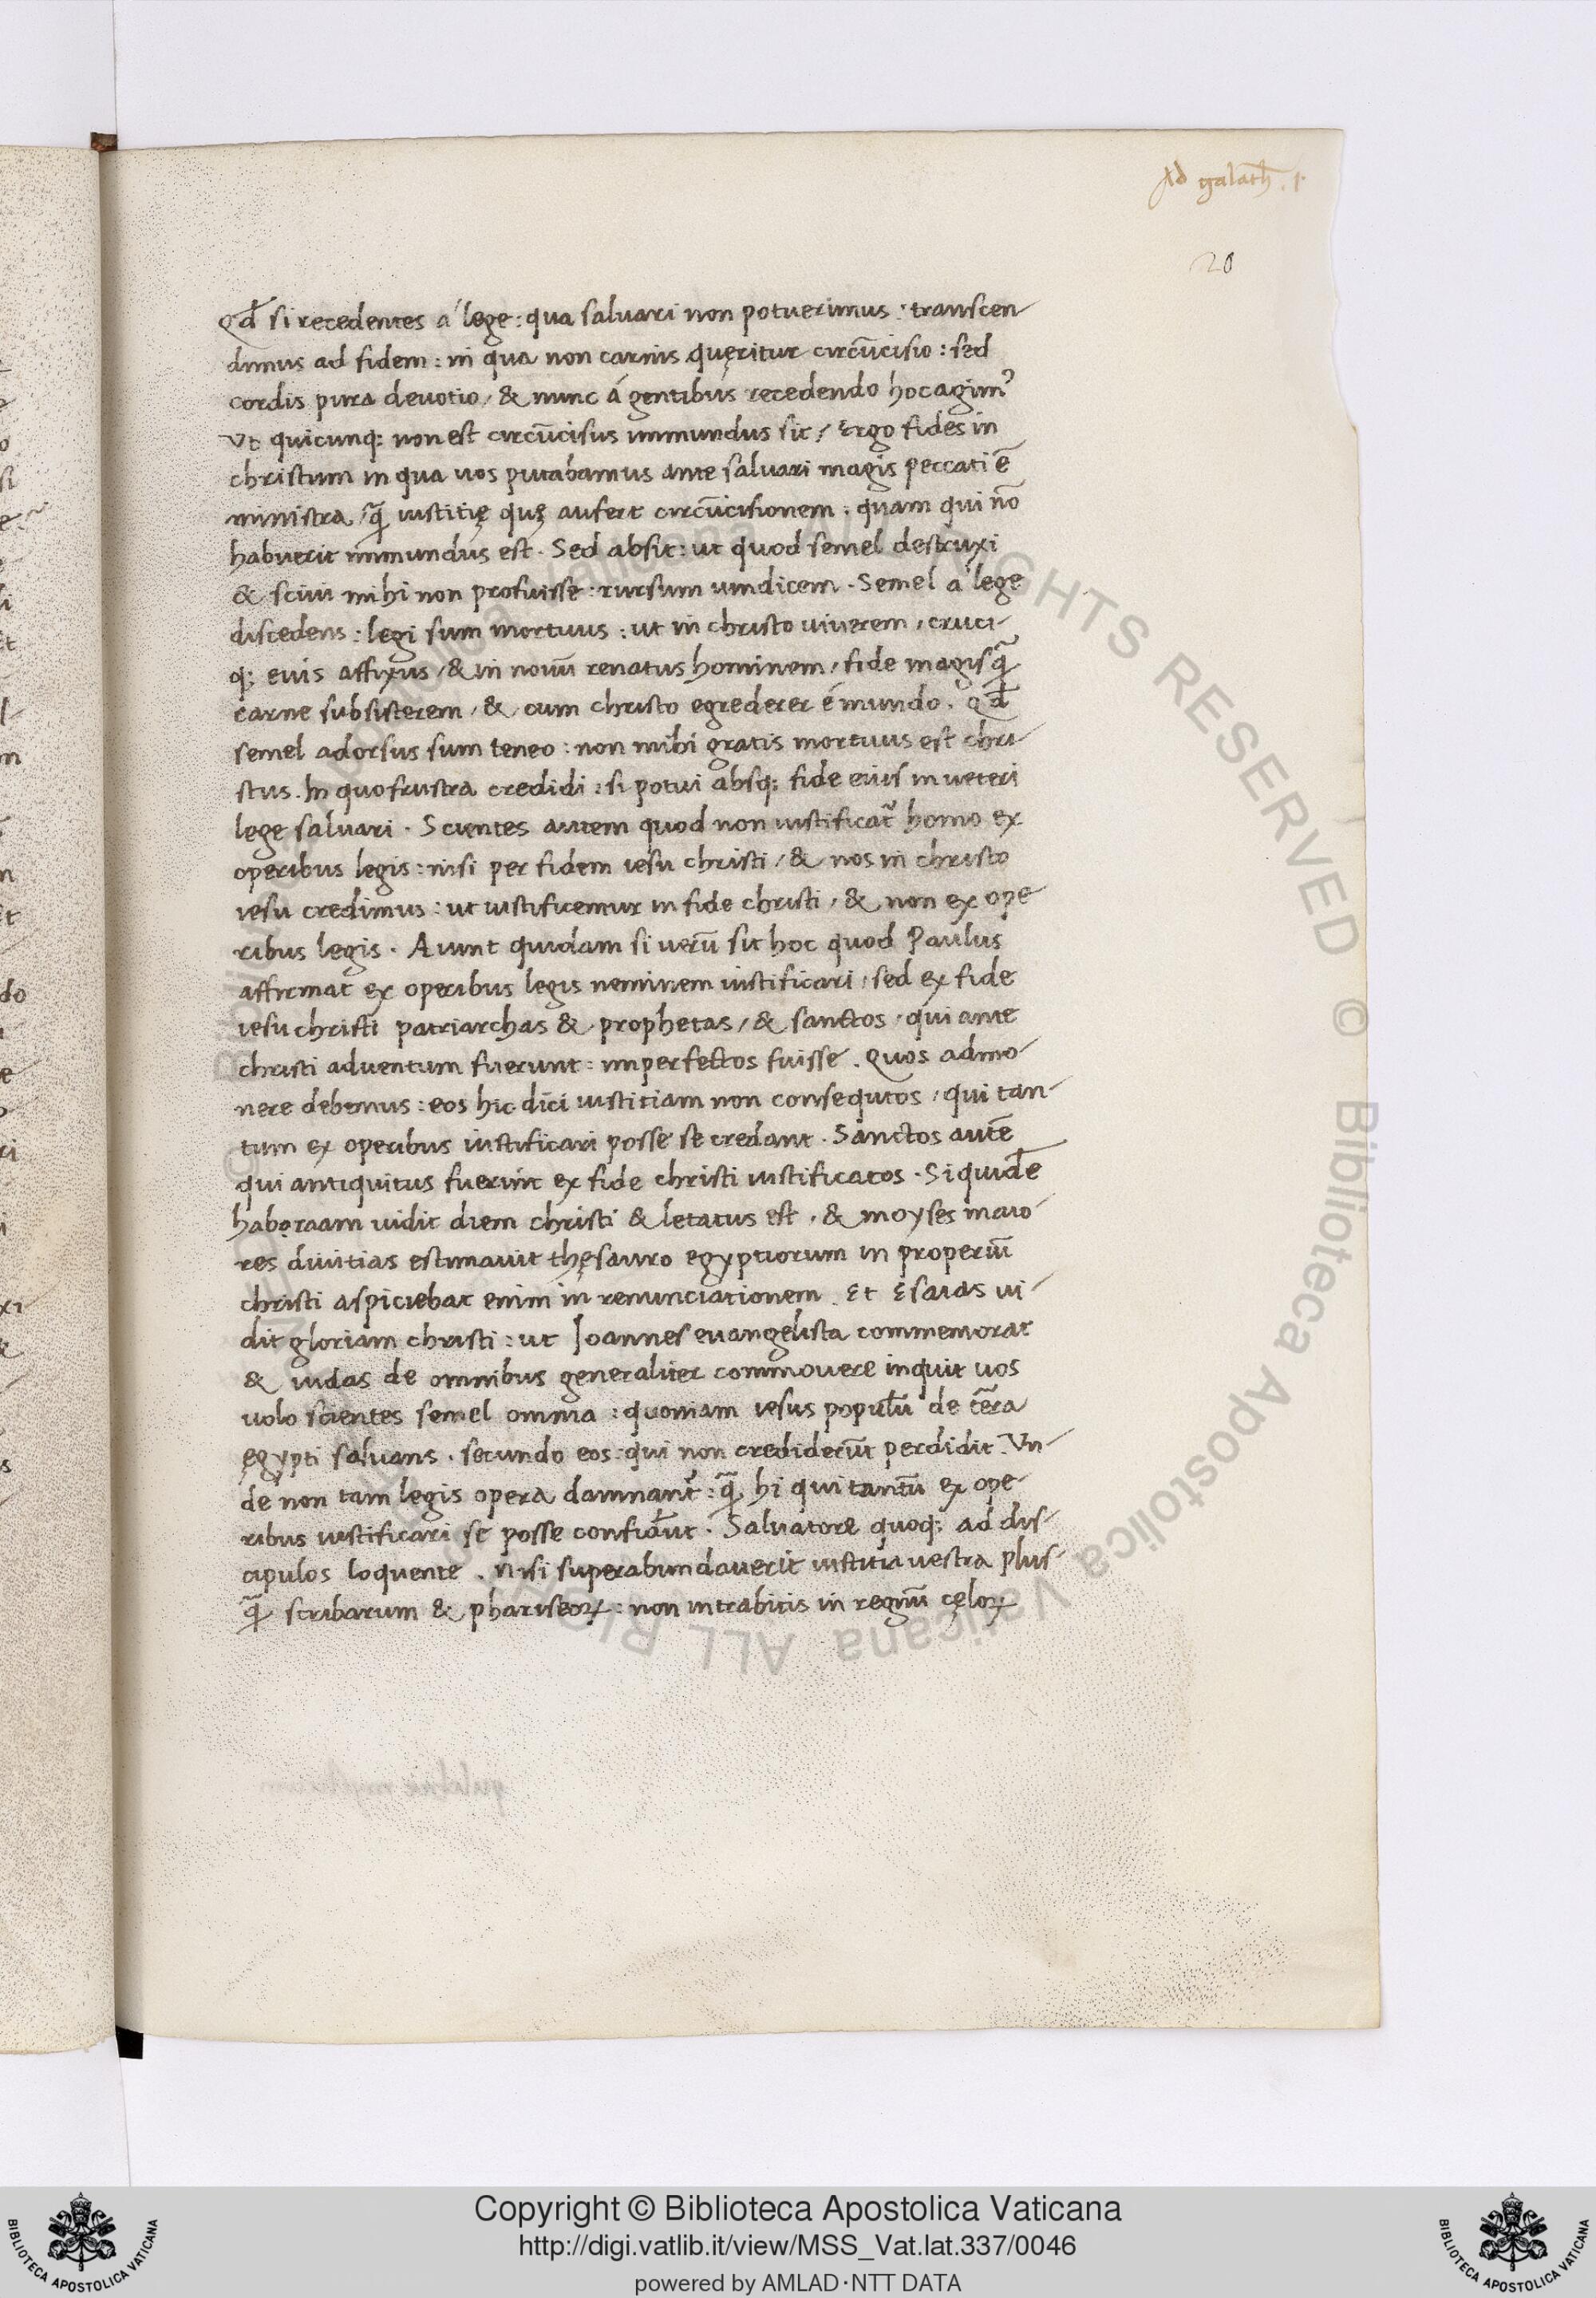 Ad galath̄. 1.
20
Qđ si recedentes á lege: qua saluari non potuerimus: transcen-
dimus ad fidem: in qua non carnis quęritur circūcisio: sed
cordis pura deuotio/ & nunc á gentibus recedendo hoc agimꝰ
Vt quicunq; non est circūcisus immundus sit/ Ergo fides in
christum in qua uos putabamus ante saluari magis peccati ē
ministra/ q̄ iustitię quę aufert circūcisionem: quam qui nō
habuerit immundus est. Sed absit: ut quod semel destruxi
& sciui mihi non profuisse: rursum uindicem. Semel á lege
discedens: legi sum mortuus: ut in christo uiuerem, cruci-
q; euis affixus/ & in nouū renatus hominem/ fide magis q̄
carne subsisterem/ & cum christo egrederer é mundo. Qđ
semel adorsus sum teneo: non mihi gratis mortuus est chri-
stus. In quo frustra credidi: si potui absq; fide eius in ueteri
lege saluari. Scientes autem quod non iustificat᷑ homo ex
operibus legis: nisi per fidem iesu christi/ & nos in christo
iesu credimus: ut iustificemur in fide christi, & non ex ope-
ribus legis. Aiunt quidam si uerū sit hoc quod Paulus
affirmat ex operibus legis neminem iustificari, sed ex fide
iesu christi patriarchas & prophetas/ & sanctos/ qui ante
christi aduentum fuerunt: imperfectos fuisse. Quos admo-
nere debemus: eos hic dici iustitiam non consequtos/ qui tan-
tum ex operibus iustificari posse se credant. Sanctos autē
qui antiquitus fuerint ex fide christi iustificatos. Siquidē
habaraam uidit diem christi & letatus est, & moyses maio-
res diuitias estimauit thęsauro egyptiorum in properiū
christi aspiciebat enim in renunciationem. Et Esaias ui-
dit gloriam christi: ut Joannes euangelista commemorat
& iudas de omnibus generaliter commouere inquit uos
uolo scientes semel omnia: quoniam iesus populū de tēra
ęgypti saluans. secundo eos: qui non crediderūt perdidit. Vn-
de non tam legis opera damnant᷑: q̄ hi qui tantū ex ope-
ribus iustificari se posse confidāt. Saluatore quoq; ad dis-
cipulos loquente. nisi superabundauerit iustitia uestra plus
q̄ scribarum & phariseoꝝ: non intrabitis in regnū cęloꝝ
Copyright © Biblioteca Apostolica Vaticana
http://digi.vatlib.it/view/MSS_Vat.lat.337/0046
powered by AMLAD·NTT DATA